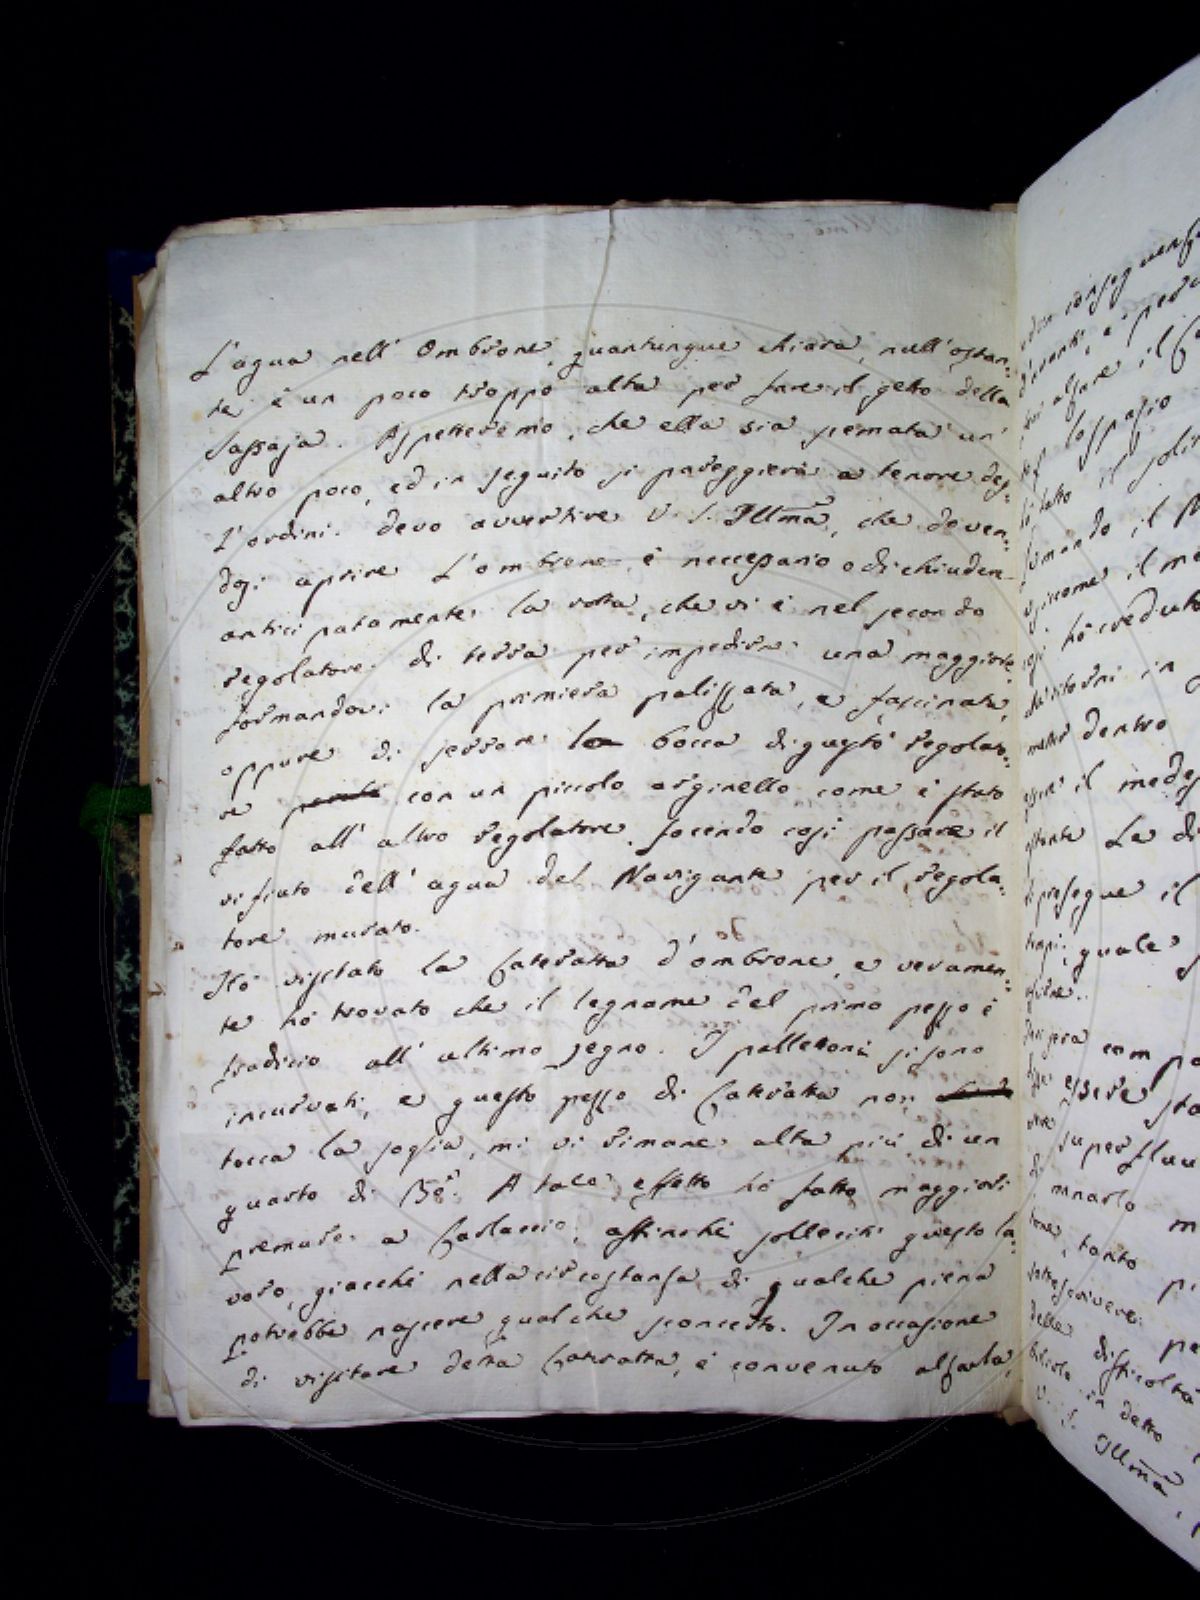 L'aqua nell' Ombrone, quantunque chiara, null'ostan=
te è un poco troppo alta per fare il getto della
Sassaja. Aspetteremo, che ella sia scemata un'
altro poco, ed in seguito si pareggierà a tenore deg=
l'ordini. devo avvertire V. S. Illma, che doven=
dosi aprire L'ombrone è neccessario o di chiudere
anticipatamente la rotta, che vi è nel secondo
regolatore di terra per impedirvi una maggiore,
formandovi la primiera palizzata, e fascinata,
oppure di serrare la bocca di questo regolato=
re con un piccolo arginello come è stato
fatto all' altro regolatore, facendo così passare il
rifiuto dell' aqua del Navigante per il regola=
tore murato.
Hò visitato la Cateratta d'ombrone, e veramen=
te hò trovato che il legname del primo pezzo è
fradicio all' ultimo segno. I pallettoni si sono
incurvati, e questo pezzo di Cateratta non
tocca la soglia, mi vi rimane alta più di un
quarto di Bo. A tale effetto hò fatto maggiori
premure a Carlaccio, affinchè solleciti questo la=
voro, giacchè nella circostanza di qualche piena
potrebbe nascere qualche sconcerto. In occasione
di visitare detta Catratta, è convenuto alzarla,
con conseguenza
alzare il
lo spazio
fatto il
formando il
siccome il
hò creduto
ritorni in
dentro
il medes
La di
prosegue il
quale
com
essere sta
superfluo
tanto
della difficoltà
in detto
V. S. Illma,